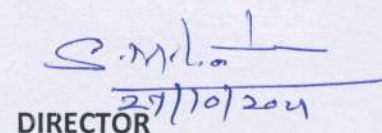 27/10/2021
DIRECTOR